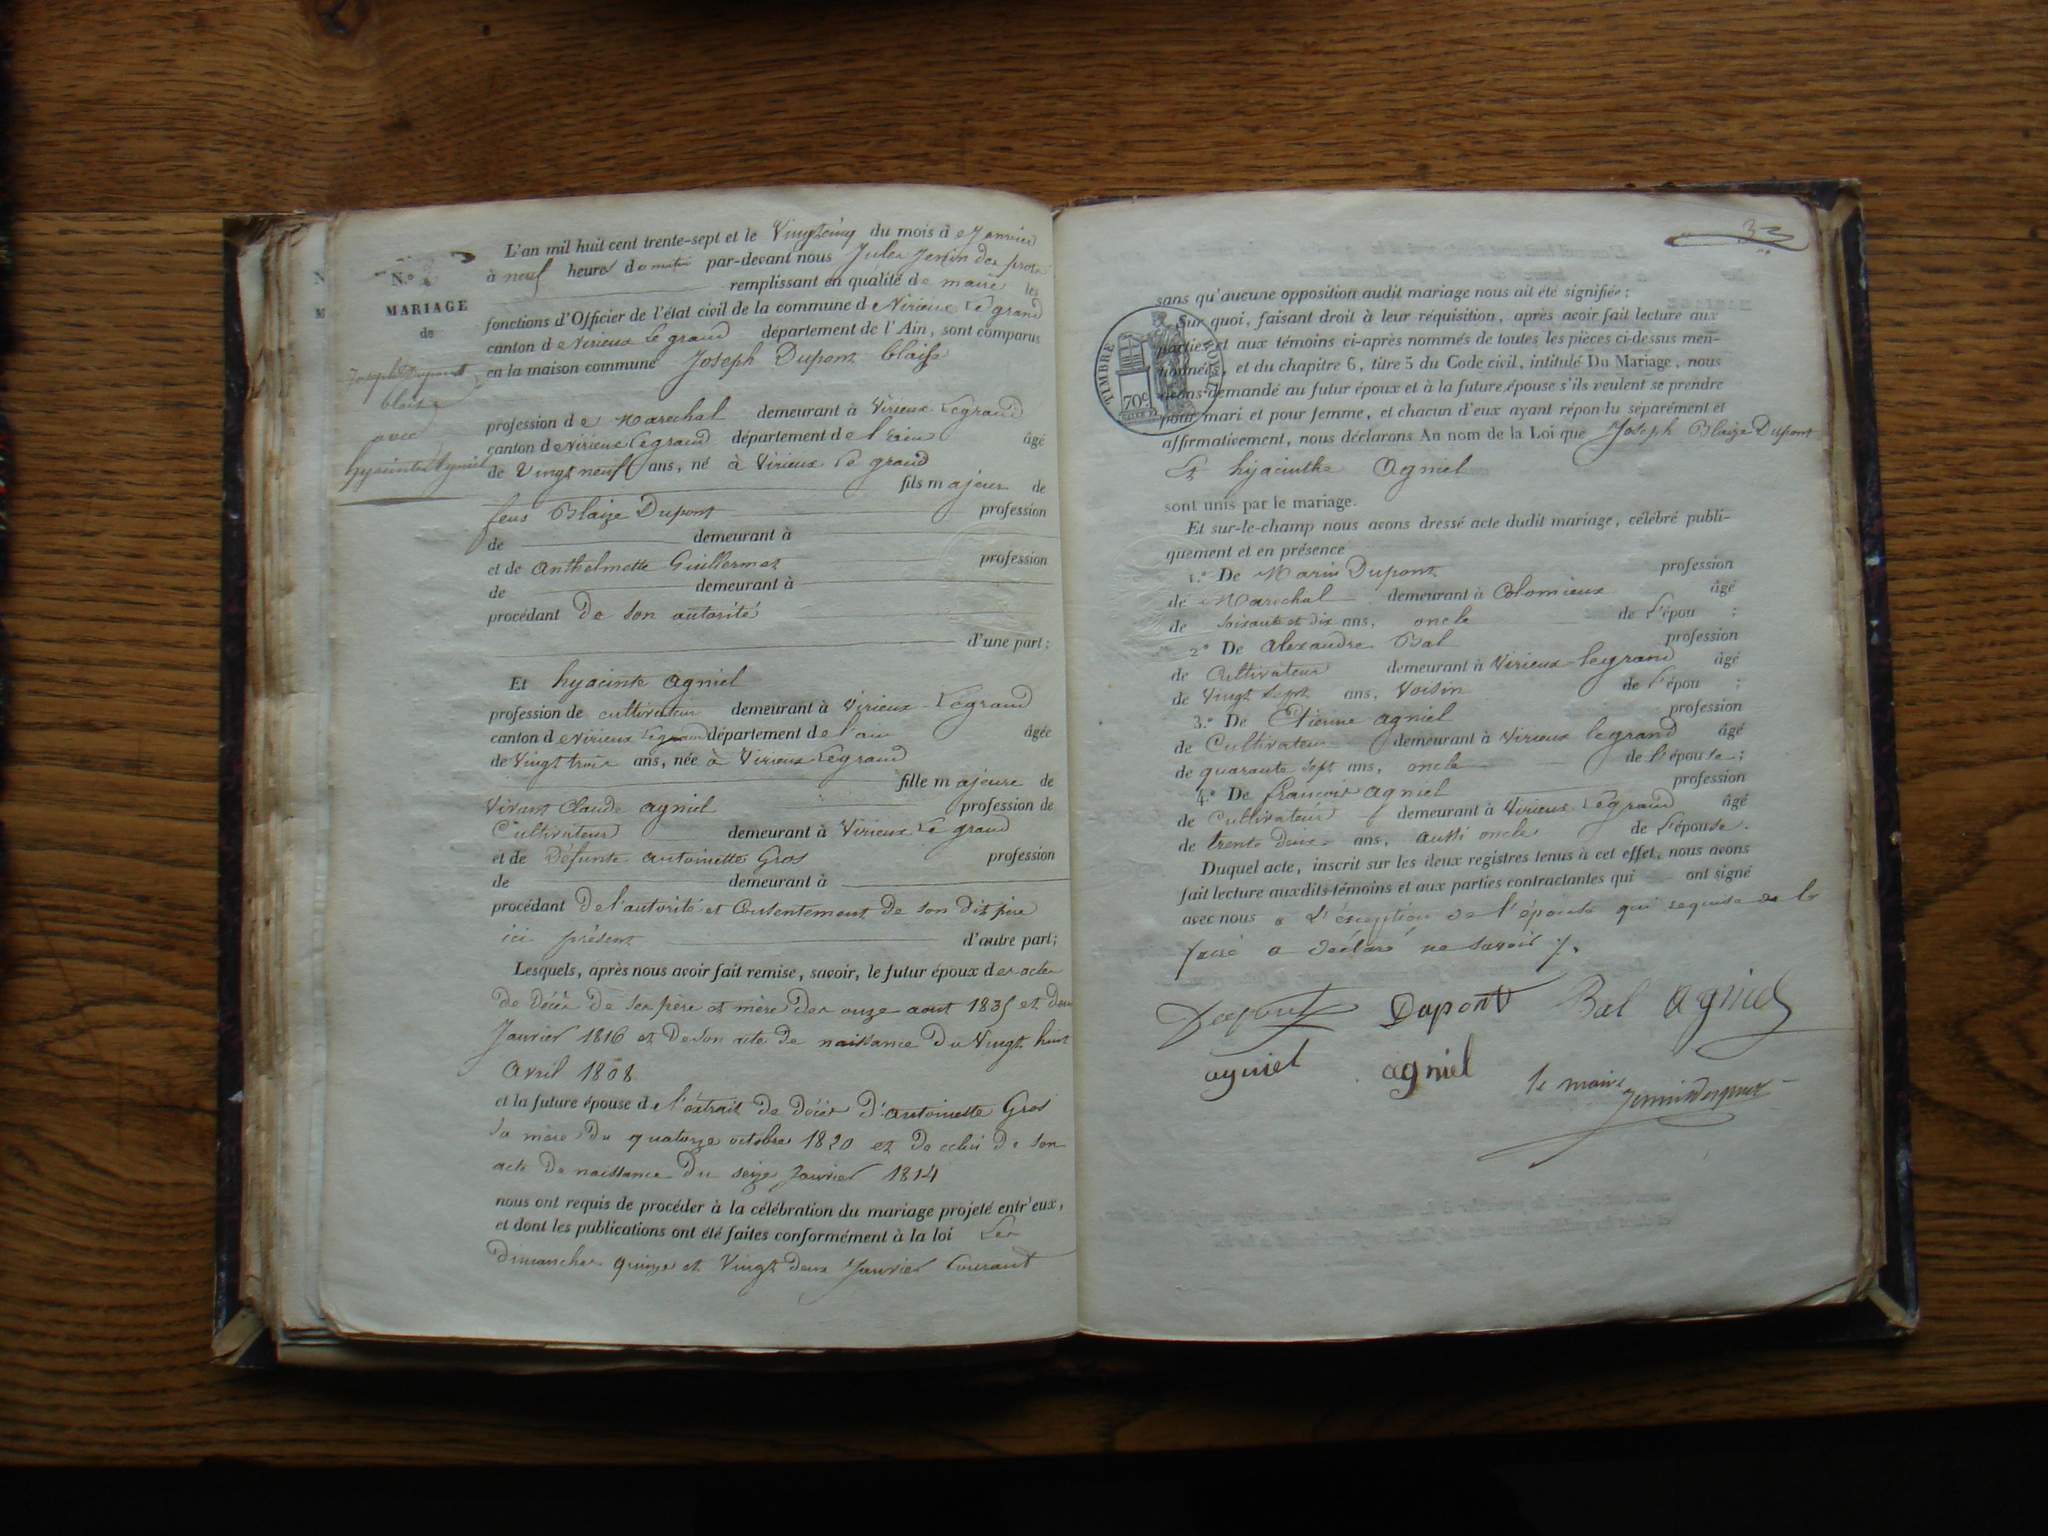 N.º
MARIAGE
de
Joseph Dupont
blaise
avec
hyacinte Agniel
L'an mil huit cent trente-sept et le Vingt cinq du mois de Janvier
à neuf heures du matin par-devant nous Jules Jenin des prost
remplissant en qualité de maire les
fonctions d'Officier de l'état civil de la commune de Virieux Le grand
canton de Virieux Le grand département de l'Ain, sont comparus
en la maison commune Joseph Dupont blaise
profession de Marechal demeurant à Virieux Legrand
canton de Virieux Legrand département de l'ain âgé
de Vingt neuf ans, né à Virieux Le grand
fils majeur de
feus Blaize Dupont profession
de demeurant à
et de Anthelmette Guillermet profession
de demeurant à
procédant de son autorité
d'une part;
Et hyacinte agniel
profession de cultivateur demeurant à Virieux Legrand
canton de Virieux Legrand département de l'ain âgée
de Vingt trois ans, née à Virieux Legrand
fille majeure de
Vivant Claude agniel profession de
Cultivateur demeurant à Virieux Le grand
et de Défunte antoinette Gros profession
de demeurant à
procédant de l'autorité et Consentement de son dit père
ici présent d'autre part;
Lesquels, après nous avoir fait remise, savoir, le futur époux des actes
de décès de ses père et mère des onze aout 1835 et deux
Janvier 1816 et de son acte de naissance du Vingt huit
Avril 1808
et la future épouse de l'extrait de décès d'antoinette Gros
sa mère du quatorze octobre 1820 et de celui de son
acte de naissance du seize Janvier 1814
nous ont requis de procéder à la célébration du mariage projeté entr'eux,
et dont les publications ont été faites conformément à la loi Les
dimanches quinze et Vingt deux Janvier Courant
sans qu'aucune opposition audit mariage nous ait été signifiée;
Sur quoi, faisant droit à leur réquisition, après avoir fait lecture aux
parties et aux témoins ci-après nommés de toutes les pièces ci-dessus men-
tionnées, et du chapitre 6, titre 5 du Code civil, intitulé Du Mariage, nous
avons demandé au futur époux et à la future épouse s'ils veulent se prendre
pour mari et pour femme, et chacun d'eux ayant répondu séparément et
affirmativement, nous déclarons Au nom de la Loi que Joseph Blaize Dupont
Et hyacinthe Agniel
sont unis par le mariage.
Et sur-le-champ nous avons dressé acte dudit mariage, célébré publi-
quement et en présence
1.º De Marin Dupont profession
de Marechal demeurant à Colomieux âgé
de soixante et dix ans, oncle de L'épou ;
2º De Alexandre Bal profession
de Cultivateur demeurant à Virieux legrand âgé
de Vingt Sept ans, Voisin de L'épou ;
3.º De Etienne agniel profession
de Cultivateur demeurant à Virieux legrand âgé
de quarante sept ans, oncle de l'épouse;
4.º De francois agniel profession
de Cultivateur demeurant à Virieux Legrand âgé
de trente deux ans, aussi oncle de L'épouse.
Duquel acte, inscrit sur les deux registres tenus à cet effet, nous avons
fait lecture auxdits témoins et aux parties contractantes qui ont signé
avec nous a L'éxception de l'épouse qui requise de le
faire a déclaré ne savoir
Dupont Dupont Bal Agniel
agniel agniel le maire
TIMBRE ROYAL
70c